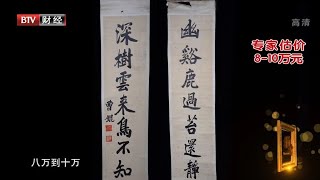 BTV 财经
高清
专家估价
8-10万元
幽谿鹿過苔還靜
深樹雲来鳥不知
曹錕
八万到十万